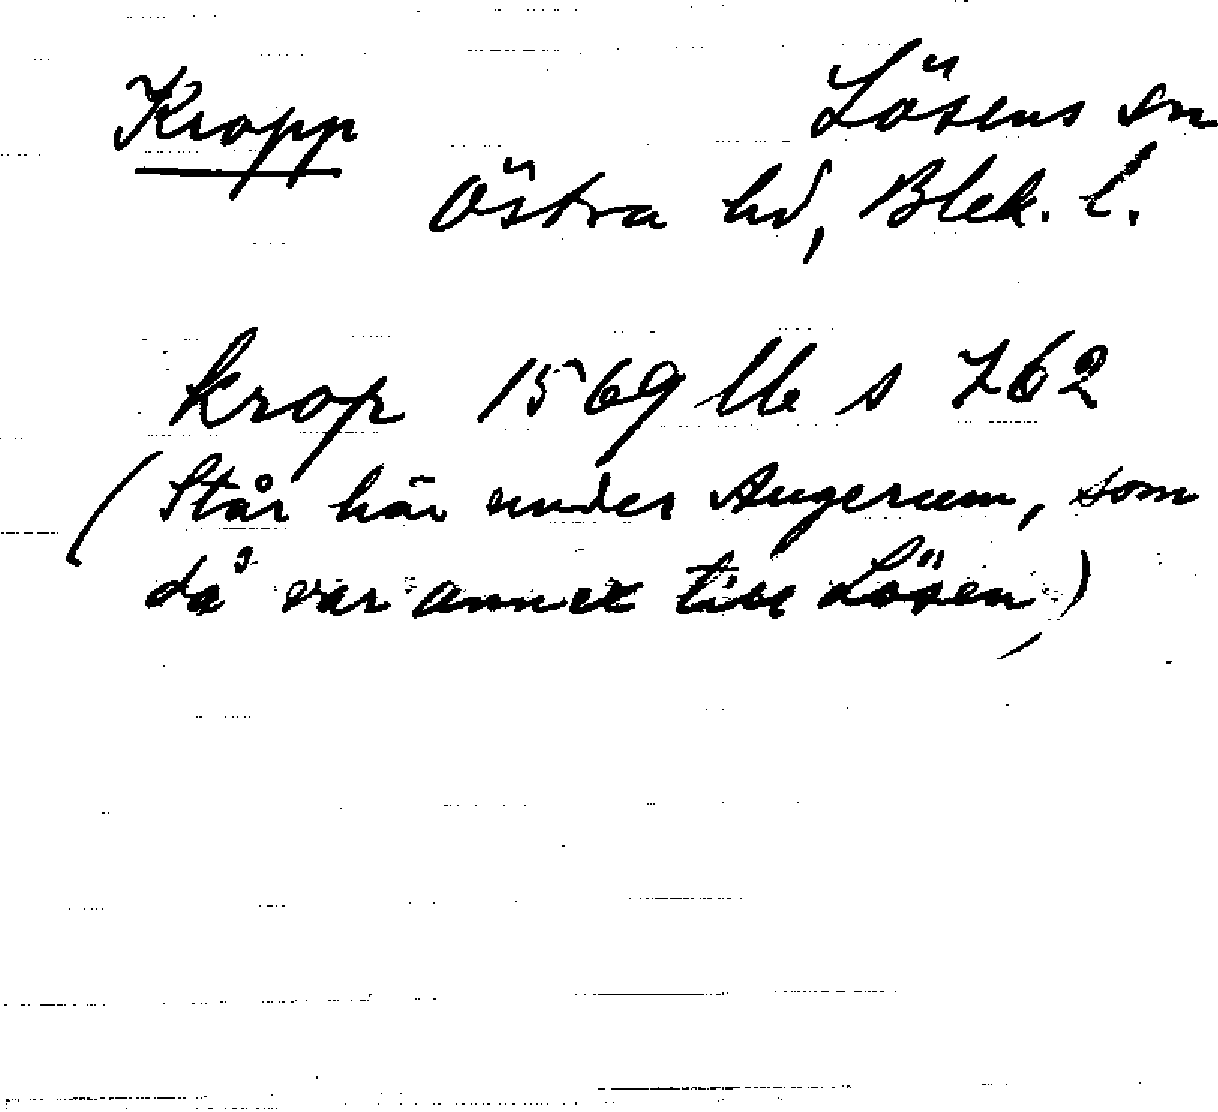 Kropp Lösens sn
Östra hd, Blek. l.
krop 1569 s 762
(Står här under Augerum, som
då var annex till Lösen)